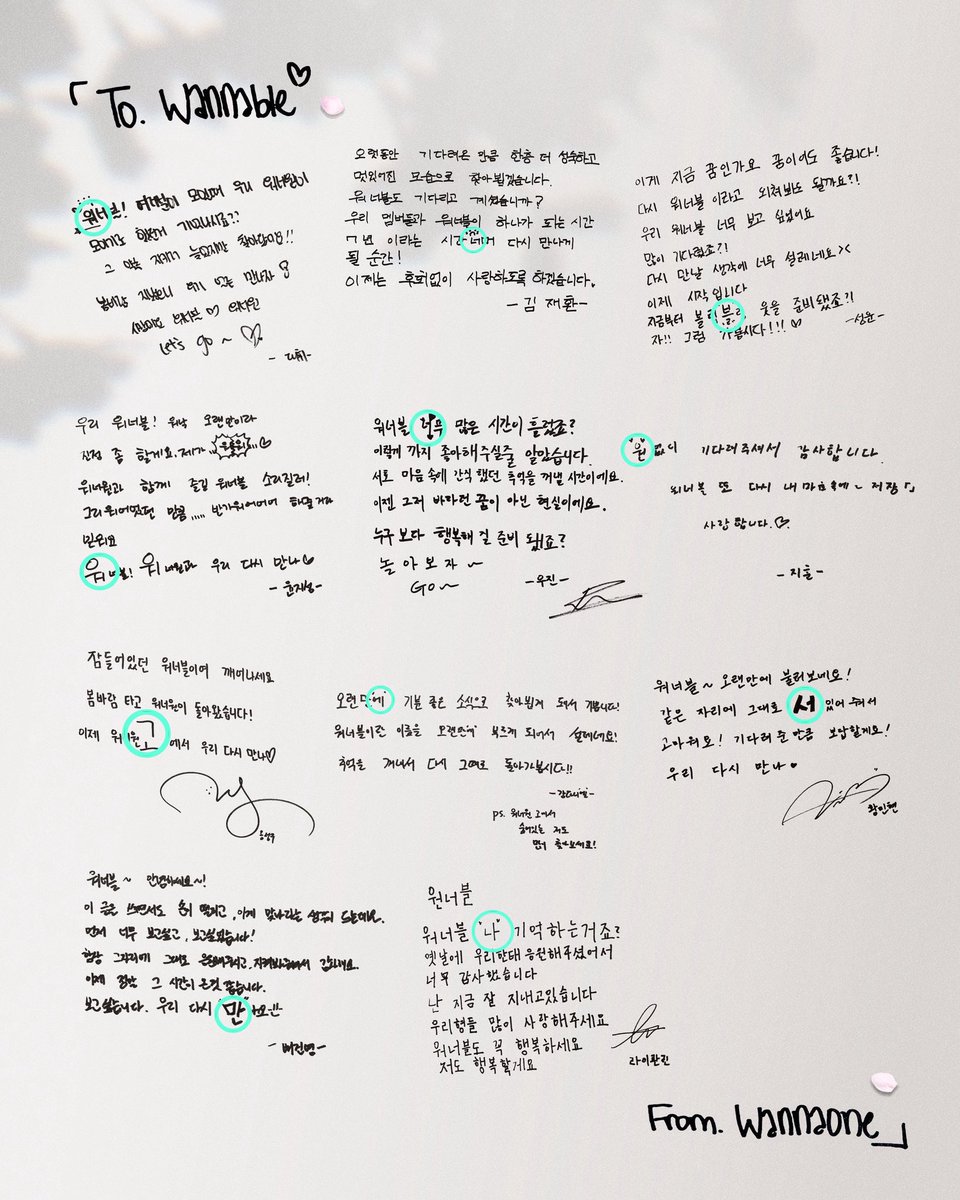 「 To. Wannable♡
워너블! 여러분이 모이면 우리 워너원이
모이기도 했던거 기억나시죠??
let's go ~ ♡
오랫동안 기다려온 만큼 한층 더 성숙하고
멋있어진 모습으로 찾아뵙겠습니다.
워너블도 기다리고 계셨습니까?
우리 멤버들과 워너블이 하나가 되는 시간
7년 이라는 시간 너머 다시 만나게
될 순간!
이제는 후회없이 사랑하도록 하겠습니다.
- 김재환 -
이게 지금 꿈인가요 꿈이어도 좋습니다!
다시 워너블 이라고 외쳐봐도 될까요?!
우리 워너블 너무 보고 싶었어요
많이 기다렸죠?!
다시 만날 생각에 너무 설레네요 ><
이제 시작입니다
지금부터 블리블리 웃을 준비됐죠?!
자!! 그럼 가봅시다!!! ♡
- 성운 -
우리 워너블! 워낙 오랜만이라
진정 좀 할게요. 제가
워너원과 함께 즐길 워너블 소리질러!
그리워어했던 만큼,,,,, 반가워어어어 하실거라
믿워요
워너블! 워너원과 우리 다시 만나♡
- 윤지성 -
워너블 너무 많은 시간이 흘렀죠?
이렇게 까지 좋아해주실줄 알았습니다.
서로 마음 속에 간직했던 추억을 꺼낼 시간이에요.
이젠 그리 바라던 꿈이 아닌 현실이에요.
누구보다 행복해 질 준비 됐죠?
놀아보자 ~
GO ~
- 우진 -
원없이 기다려주셔서 감사합니다.
워너블 또 다시 내 마음속에~ 저장「」
사랑합니다.♡
- 지훈 -
잠들어있던 워너블이여 깨어나세요
봄바람 타고 워너원이 돌아왔습니다!
이제 워너원고에서 우리 다시 만나♡
옹성우
오랜만에 기분 좋은 소식으로 찾아뵙게 돼서 기쁩니다!
워너블이란 이름을 오랜만에 부르게 되어서 설레네요!
추억을 꺼내서 다시 그때로 돌아가봅시다!!
- 강다니엘 -
ps. 워너원 고에서
숨어있는 저도
먼저 찾아보세요!
워너블~ 오랜만에 불러보네요!
같은 자리에 그대로 서있어 줘서
고마워요! 기다려준만큼 보답할게요!
우리 다시 만나♥
황민현
워너블~ 안녕하세요~!
먼저 너무 보고싶고, 보고싶었습니다!
보고싶습니다. 우리 다시 만나요!!
- 배진영 -
원너블
워너블 나 기억하는거죠?
옛날에 우리한태 응원해주셨어서
너무 감사했습니다
난 지금 잘 지내고있습니다
우리형들 많이 사랑해주세요
워너블도 꼭 행복하세요
저도 행복할게요
라이관린
From. Wannaone 」